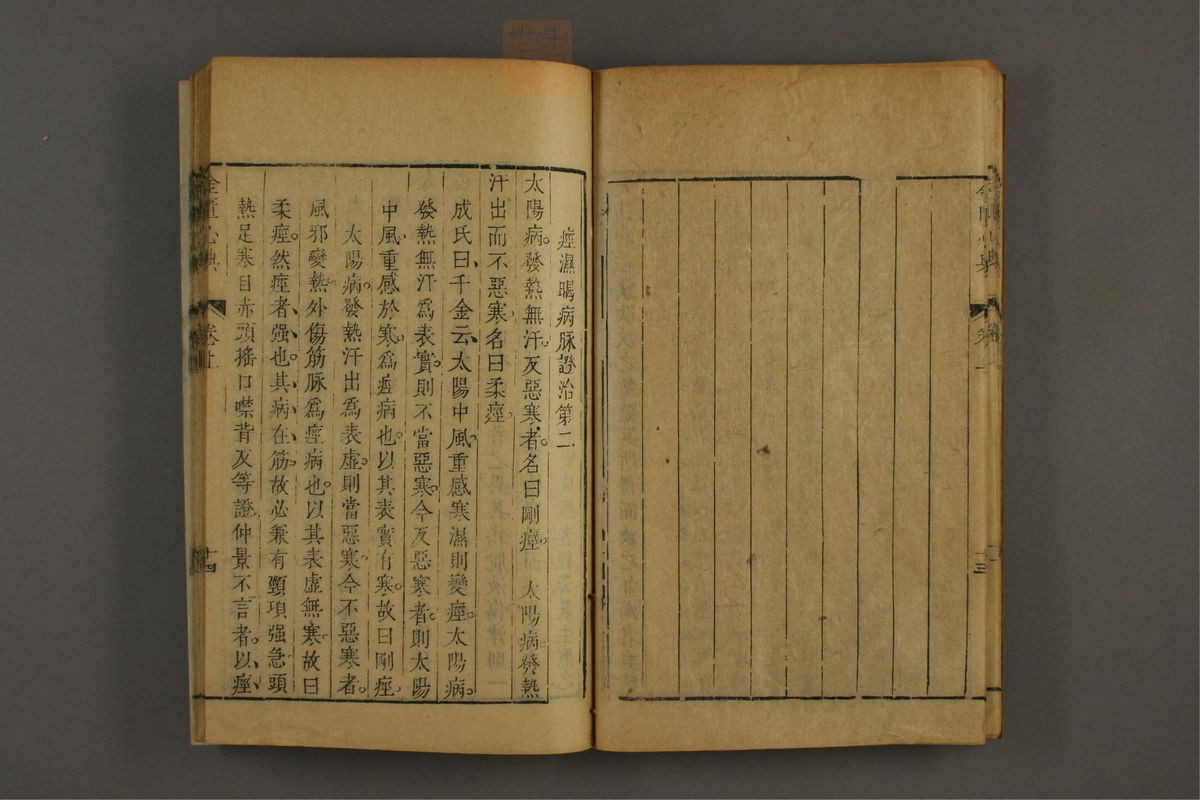 痙濕暍病脉證治第二
太陽病。發熱無汗。反惡寒者。名曰剛痙。太陽病。發熱
汗出而不惡寒。名曰柔痙。
成氏曰、千金云、太陽中風、重感寒濕則變痙。太陽病。
發熱無汗爲表實。則不當惡寒。今反惡寒者。則太陽
中風、重感於寒。爲痙病也。以其表實有寒。故曰剛痙。
太陽病。發熱汗出爲表虛。則當惡寒。今不惡寒者。
風邪變熱、外傷筋脉爲痙病也。以其表虛無寒。故曰
柔痙。然痙者、强也。其病在筋。故必兼有頸項强急、頭
熱足寒目赤頭搖口噤背反等證。仲景不言者。以痙
金匱心典
卷上
十四
十三